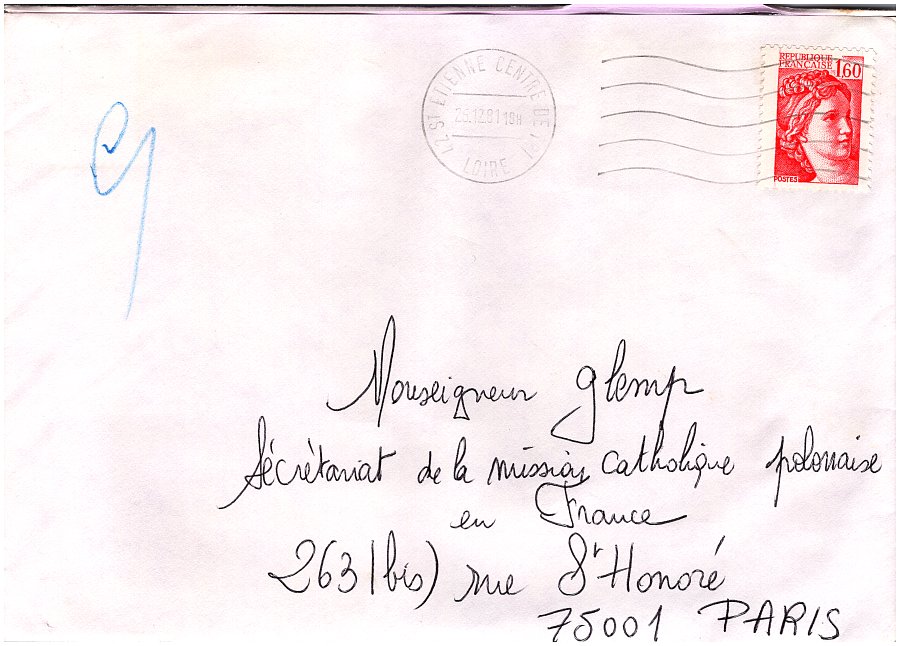 RÉPUBLIQUE
FRANÇAISE 1,60
POSTES
42 ST ETIENNE CENTRE DE
26.12.81 19H
LOIRE
Monseigneur Glemp
Sécrétariat de la mission catholique polonaise
en France
263 (bis) rue St Honoré
75001 PARIS